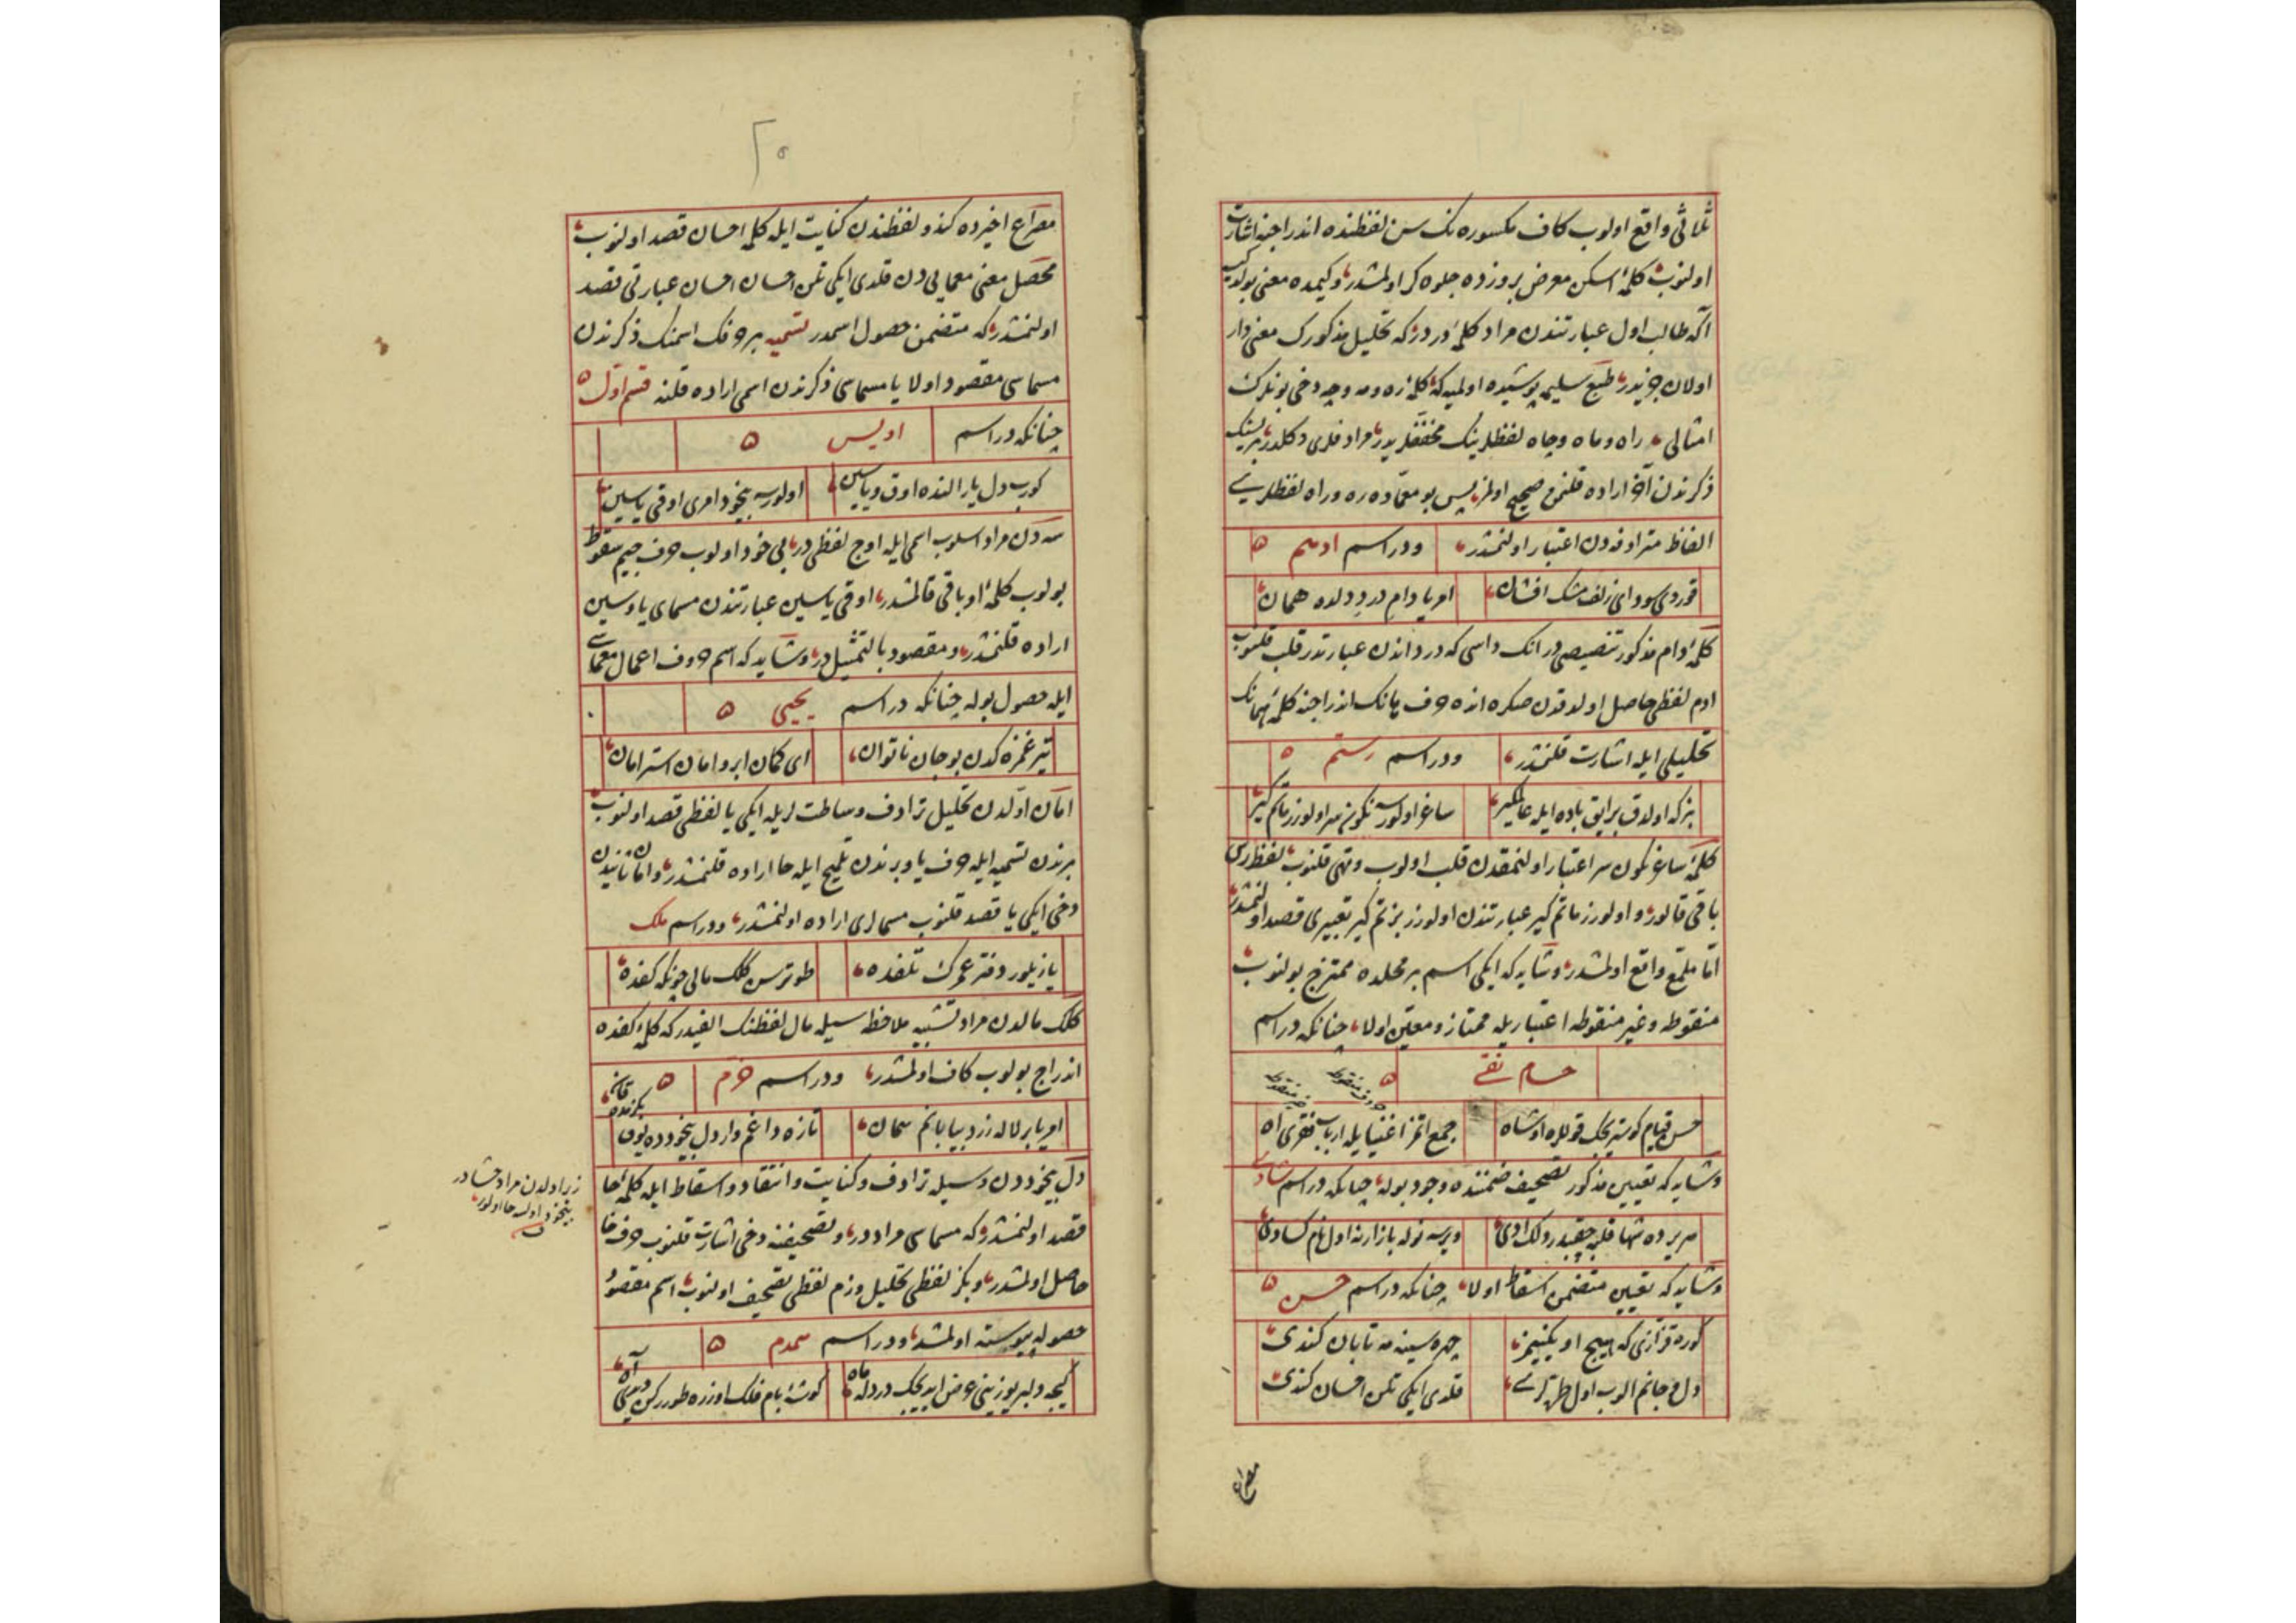 ثلاثی واقع اولوب کاف مکسوره نک سن لفظنده اندراجنه اشارت
اولنوب کلمهٔ اسکن معرض بروزده جلوه کر اولمشدر وکیمده معنی بولدی
آکه طالب اول عبارتندن مراد کلمهٔ در درکه تحلیل مذکورک معنی دار
اولان جزیدر طبع سلیمه پوشیده اولمیه که کلمهٔ ره ومه وچه دخی بونلرک
امثالی راه وماه وچاه لفظلرینک مخففلریدر مرادفلری دکلدر برینک
ذکرندن آخر اراده قلنمق صحیح اولمز پس بو معماده ره وراه لفظلری
الفاظ مترادفه دن اعتبار اولنمشدر ودر اسم ادهم
قوردی سودای زلف مشک افشان امریا دام دردِ دلده همان
کلمهٔ دام مذکور تنصیصی در انک داسی که درد اندن عبارتدر قلب قلنوب
ادم لفظی حاصل اولدقدن صکره انده حرف هانک اندراجنه کلمهٔ همانک
تحلیلی ایله اشارت قلنمشدر ودر اسم رستم
بزکه اولدق برایق باده ایله عالمگیر ساغر اولور سه نکون سر اولورز ماتم گیر
کلمهٔ ساغر نکون سر اعتبار اولنمقدن قلب اولوب وتهی قلنوب لفظ رس
باقی قالور واولورز ماتم گیر عبارتندن اولورز بز تم گیر تعبیری قصد اولنمشدر
امّا ملمّع واقع اولمشدر وشاید که ایکی اسم بر محلده ممتزج بولنوب
منقوطه وغیر منقوطه اعتباریله ممتاز ومعیّن اولا چنانکه در اسم
حسام نقی
حروف منقوطه غیر منقوطه
حسن قیام کوستریجک قوللره اوشاه جمع اتمز اغنیا یله ارباب فقری اه
وشاید که تعیین مذکور تصحیف ضمننده وجود بوله چنانکه در اسم شادی
سربرده شها قلبه چقیدردلک ادی ویرسه نوله بازارنه اول نام کسادی
وشاید که تعیین متضمن اسقاط اولا چنانکه در اسم حسن
کوره قرارنی که هیچ او یکنیجز چهره سینه مه تابان کندی
دل و جانم الوب اول طرّ لری قلدی ایکی تلمن احسان کندی
مصراع
۲۵
مصراع اخیرده کندو لفظندن کنایت ایله کلمهٔ احسان قصد اولنوب
محصّل معنی معمایی دن قلدی ایکی تلمن احسان احسان عبارتی قصد
اولنمشدر که متضمن حصول اسمدر تسمیه بر حرفک اسمنک ذکرندن
مسماسی مقصود اولا یا مسماسی ذکرندن اسمی اراده قلنه قسم اوّل
چنانکه در اسم اویس
کورب دل یار النده اوق ویا سین اولورسه بیخود امری اوقی یاسین
سه دن مراد اسلوب اسمی ایله اوج لفظی در بی خود اولوب حرف جیم سقوط
بولوب کلمهٔ او باقی قالمشدر اوقی یاسین عبارتندن مسمای یا وسین
اراده قلنمشدر ومقصود بالتمثیل در وشاید که اسم حروف اعمال معمایی
ایله حصول بوله چنانکه در اسم یحیی
تیر غمزه کدن بو جان ناتوان ای کمان ابرو امان استر امان
امان اوّلدن تحلیل ترادف وساطت لریله ایکی یا لفظی قصد اولنوب
برندن تسمیه ایله حرف یا و برندن تلمیح ایله حا اراده قلنمشدر وامان ثانیدن
دخی ایکی یا قصد قلنوب مسمالری اراده اولنمشدر ودر اسم ملک
یازیلور دفتر عمرک تلفده طوترسن کلک مالی چونکه کفده
کلک مالدن مراد تشبیه ملاحظه سیله مال لفظنک الفیدر که کلمهٔ کفده
اندراج بولوب کاف اولمشدر ودر اسم خرّم
امریا بر لاله زرد بیابانم همان تازه داغم واردل بیخودده بوق بکزمده قانم
دل بیخوددن وسیله ترادف وکنایت وانتقاد واسقاط ایله کلمهٔ حا
قصد اولنمشدر که مسماسی مراددر وتصحیفنه دخی اشارت قلنوب حرف خا
حاصل اولمشدر وبکز لفظی تحلیل وزم لفظی تصحیف اولنوب اسم مقصود
حصوله پیوسته اولمشدر ودر اسم همدم
کیجه دلبر یوزینی عرض ایدیجک درد له ماه کوشهٔ بام فلک اوزره طوررکن دیمی آه
زیرا دلدن مراد حشادر
بیخود اولسه حا اولور